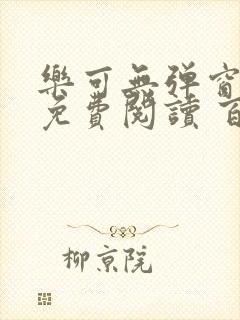 樂可無彈窗
免費閱讀 百
柳京院